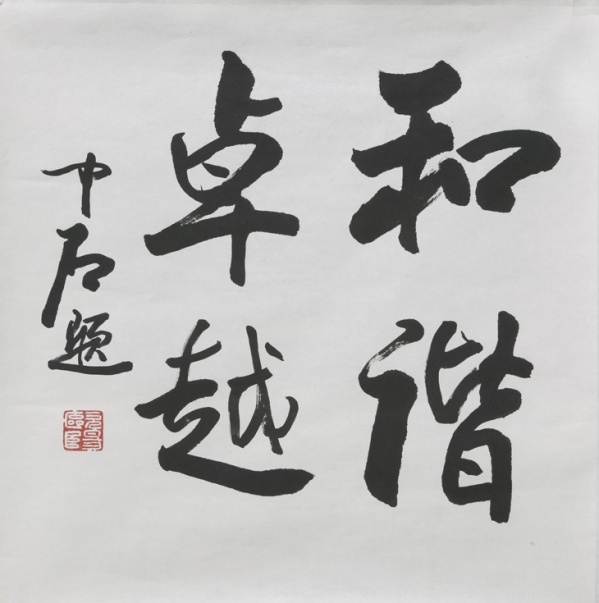 和谐
卓越
中石题